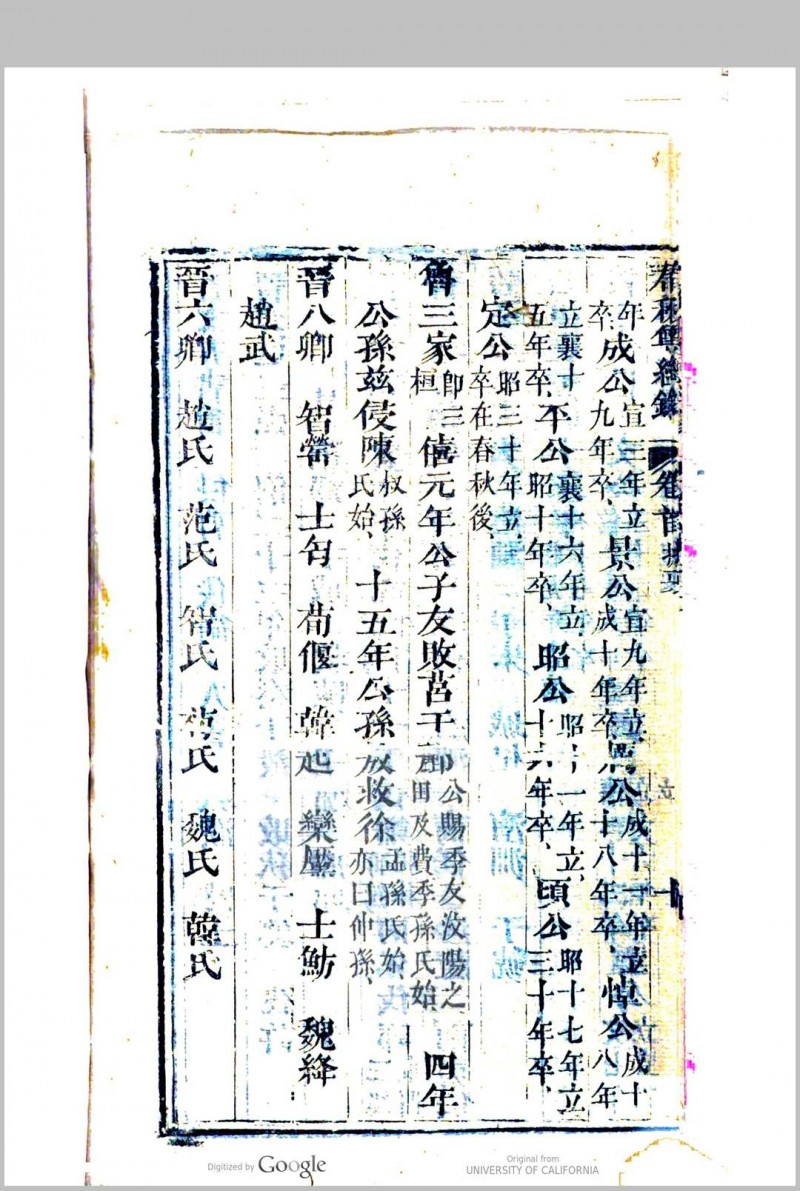 春秋傳總錄 卷首摘要 十
年卒成公宣三年立九年卒景公宣九年立成十年卒厲公成十一年立十八年卒悼公成十八年
立襄十五年卒平公襄十六年立昭十年卒昭公昭十一年立十六年卒頃公昭十七年立三十年卒
定公昭三十年立卒在春秋後
魯三家即三桓僖元年公子友敗莒于酈公賜季友汶陽之田及費季孫氏始四年
公孫茲侵陳叔孫氏始十五年公孫敖救徐孟孫氏始亦曰仲孫
晉八卿 智罃 士匄 荀偃 韓起 欒黶 士魴 魏絳
趙武
晉六卿 趙氏 范氏 智氏 荀氏 魏氏 韓氏
Digitized by Google
Original from
UNIVERSITY OF CALIFORNIA